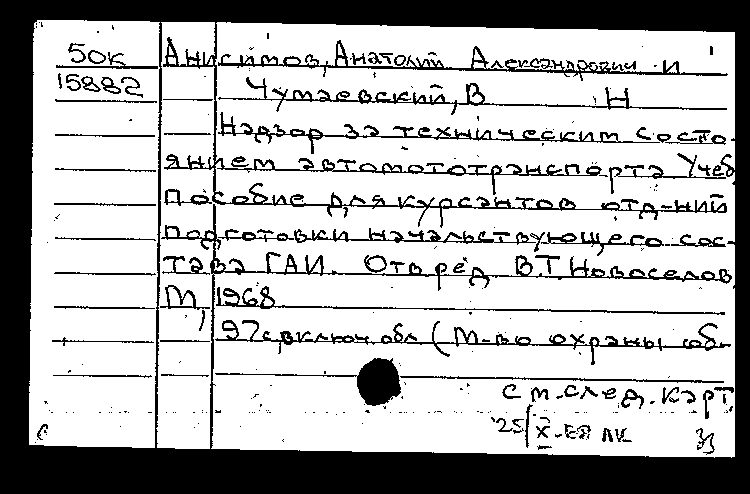 50к Анисимов, Анатолий Александрович и
15882 Чумаевский, В Н
Надзор за техническим состо-
янием автомототранспорта Учеб.
пособие для курсантов отд-ний
подготовки начальствующего сос-
тава ГАИ. Отв ред В.Т. Новоселов.
М, 1968
97с, включ. обл (М-во охраны об-
см. след. карт.
25/X-